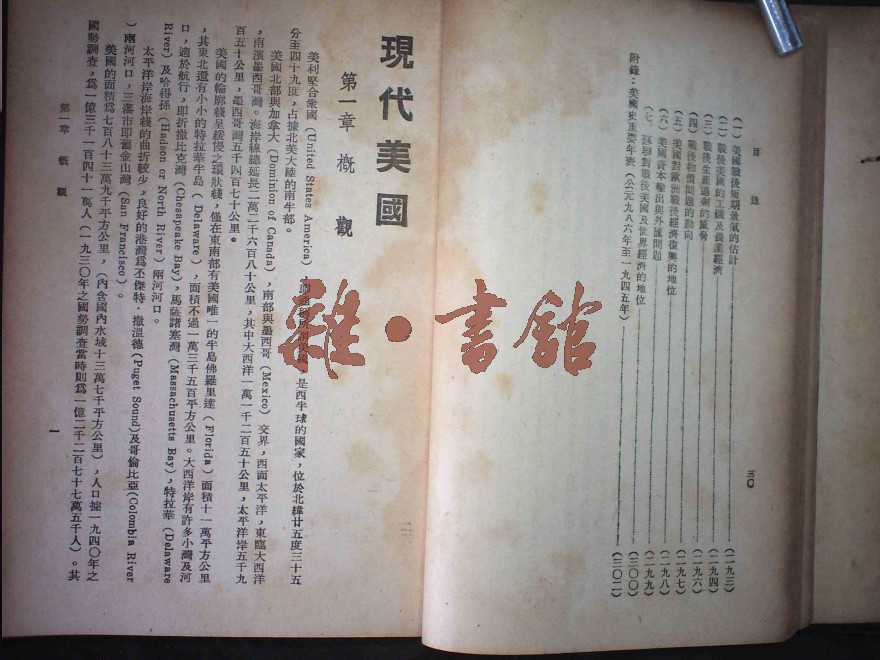 目錄
三〇
(一)美國戰後短期景氣的估計……(一九三)
(二)戰後美國的工礦及農業經濟……(一九四)
(三)戰後生產過剩的威脅……(一九六)
(四)戰後物價問題的動向……(一九七)
(五)美國對歐洲戰後經濟復興的地位……(一九八)
(六)美國資本輸出與外匯問題……(一九九)
(七)蘇聯對戰後美國及世界經濟的地位……(三〇〇)
附錄:美國史重要年表(公元九八六年至一九四五年)……(三〇二)
現代美國
第一章 概觀
美利堅合衆國(United States America),是西半球的國家,位於北緯廿五度三十五
分至四十九度,占據北美大陸的南半部。
美國北部與加拿大(Dominion of Canada),南部與墨西哥(Mexico)交界,西面太平洋,東臨大西洋
,南濱墨西哥灣。海岸線總延長二萬二千六百八十公里,其中大西洋一萬一千二百五十公里,太平洋岸五千九
百五十公里,墨西哥灣五千四百七十公里。
美國的輪廓綫呈緩慢之環狀綫,僅在東南部有美國唯一的牛島佛羅里達(Florida)面積十一萬平方公里
,其東北還有小小的特拉華牛島(Delaware),面積不過一萬三千五百平方公里。大西洋岸有許多小灣及河
口,適於航行,即折撒比克灣(Chesapeake Bay),馬薩諸塞灣(Massachusetts Bay),特拉華(Delaware
River)及哈得孫(Hudson or North River)兩河河口。
太平洋岸海岸綫的曲折較少,良好的港灣爲丕傑特·撒溫德(Puget Sound)及哥倫比亞(Colombia River
)兩河河口,三藩市即舊金山灣(San Francisco)。
美國的面積爲七百八十三萬九千平方公里,(內含國內水域十三萬七千平方公里),人口據一九四〇年之
國勢調查,爲一億三千一百四十一萬人(一九三〇年之國勢調查當時則爲一億二千二百七十七萬五千人)。其
第一章 概觀
一
雜·書館